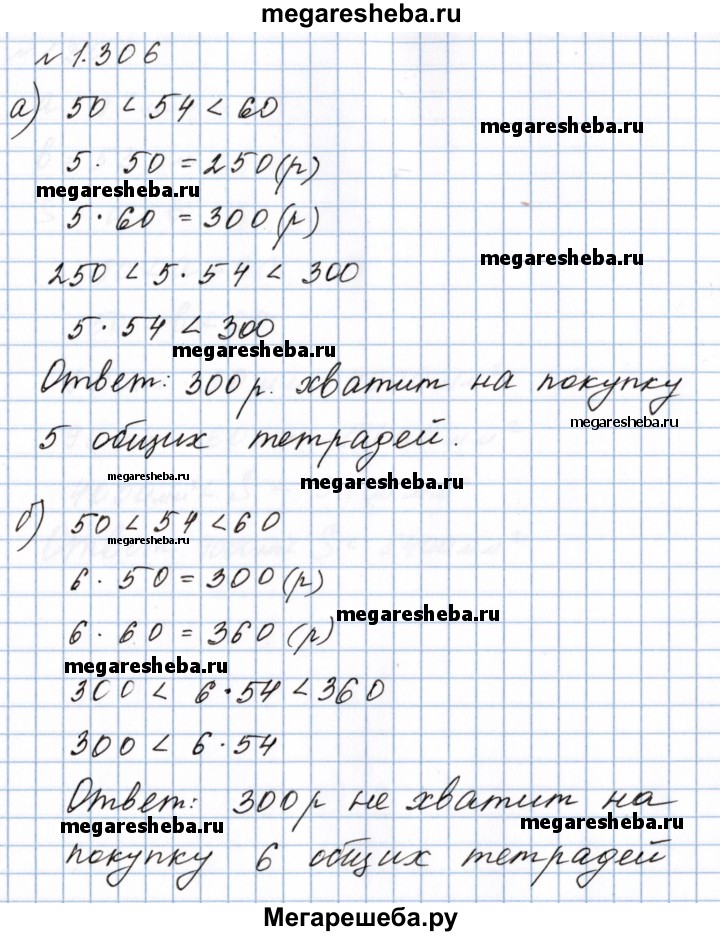 megaresheba.ru
№ 1.306
а) 50 < 54 < 60
megaresheba.ru
5 · 50 = 250 (р)
megaresheba.ru
5 · 60 = 300 (р)
megaresheba.ru
250 < 5 · 54 < 300
5 · 54 < 300
megaresheba.ru
Ответ: 300 р. хватит на покупку
megaresheba.ru
5 общих тетрадей.
megaresheba.ru
megaresheba.ru
б) 50 < 54 < 60
megaresheba.ru
6 · 50 = 300 (р)
megaresheba.ru
6 · 60 = 360 (р)
megaresheba.ru
300 < 6 · 54 < 360
300 < 6 · 54
Ответ: 300 р не хватит на
megaresheba.ru
megaresheba.ru
покупку 6 общих тетрадей
Мегарешеба.ру